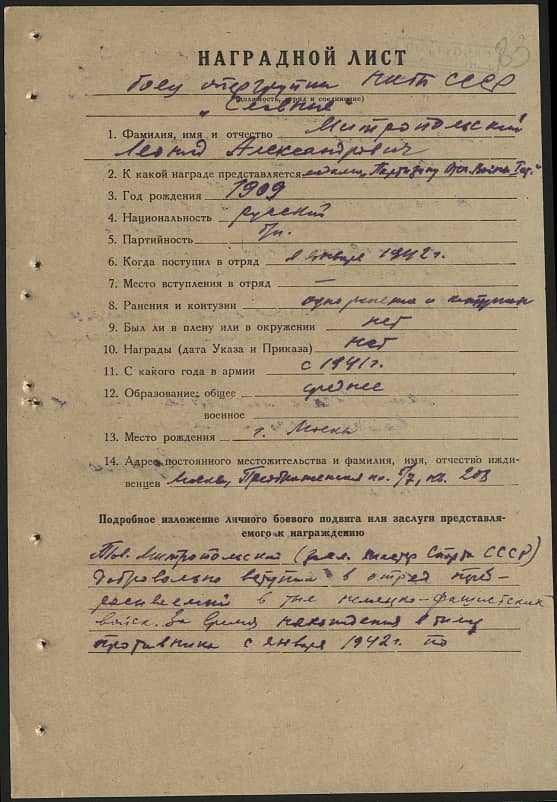 83
НАГРАДНОЙ ЛИСТ
боец опергруппы НКГБ СССР
(должность, отряд и соединение)
„Славный“
1. Фамилия, имя и отчество Митропольский
Леонид Александрович
2. К какой награде представляется медали, Партизану Отеч. Войны
3. Год рождения 1909
4. Национальность русский
5. Партийность б/п.
6. Когда поступил в отряд в январе 1942 г.
7. Место вступления в отряд —
8. Ранения и контузии одно ранение и контузия
9. Был ли в плену или в окружении нет
10. Награды (дата Указа и Приказа) нет
11. С какого года в армии с 1941 г.
12. Образование: общее среднее
военное
13. Место рождения г. Москва
14. Адрес постоянного местожительства и фамилия, имя, отчество ижди-
венцев Москва, Преображенская 5/7, кв. 203
Подробное изложение личного боевого подвига или заслуги представля-
емого к награждению
Тов. Митропольский (засл. мастер Спорта СССР)
добровольно вступил в отряд
в тыл немецко-фашистских
войск. За время нахождения в тылу
противника с января 1942 г. по